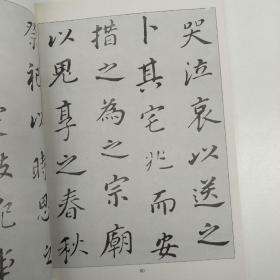 哭泣哀以送之
卜其宅兆而安
措之為之宗廟
以鬼享之春秋
祭祀以時思之